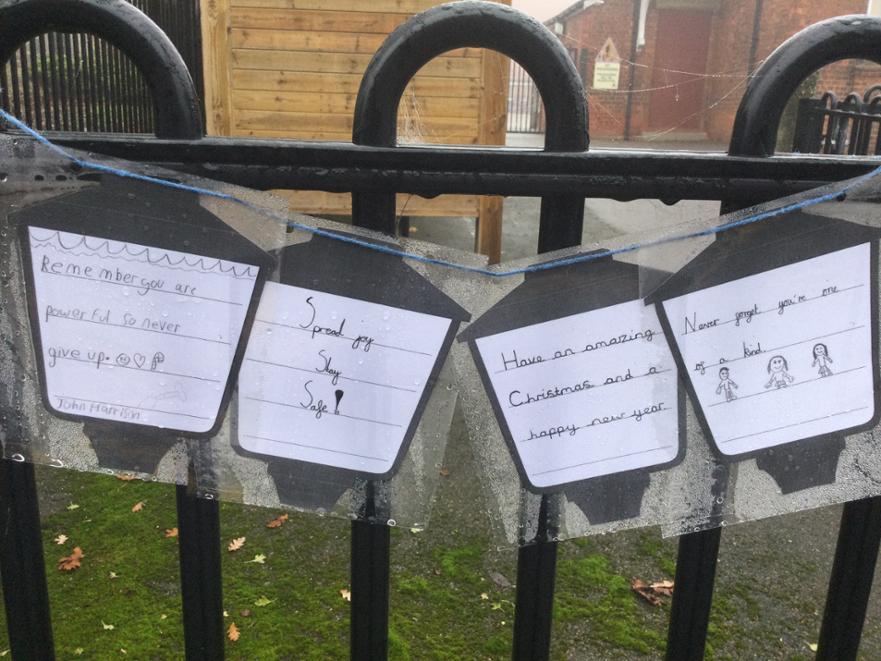 Remember you are
powerful so never
give up.
John Harrison
Spread joy
Stay
Safe!
Have an amazing
Christmas and a
happy new year.
Never forget you're one
of a kind